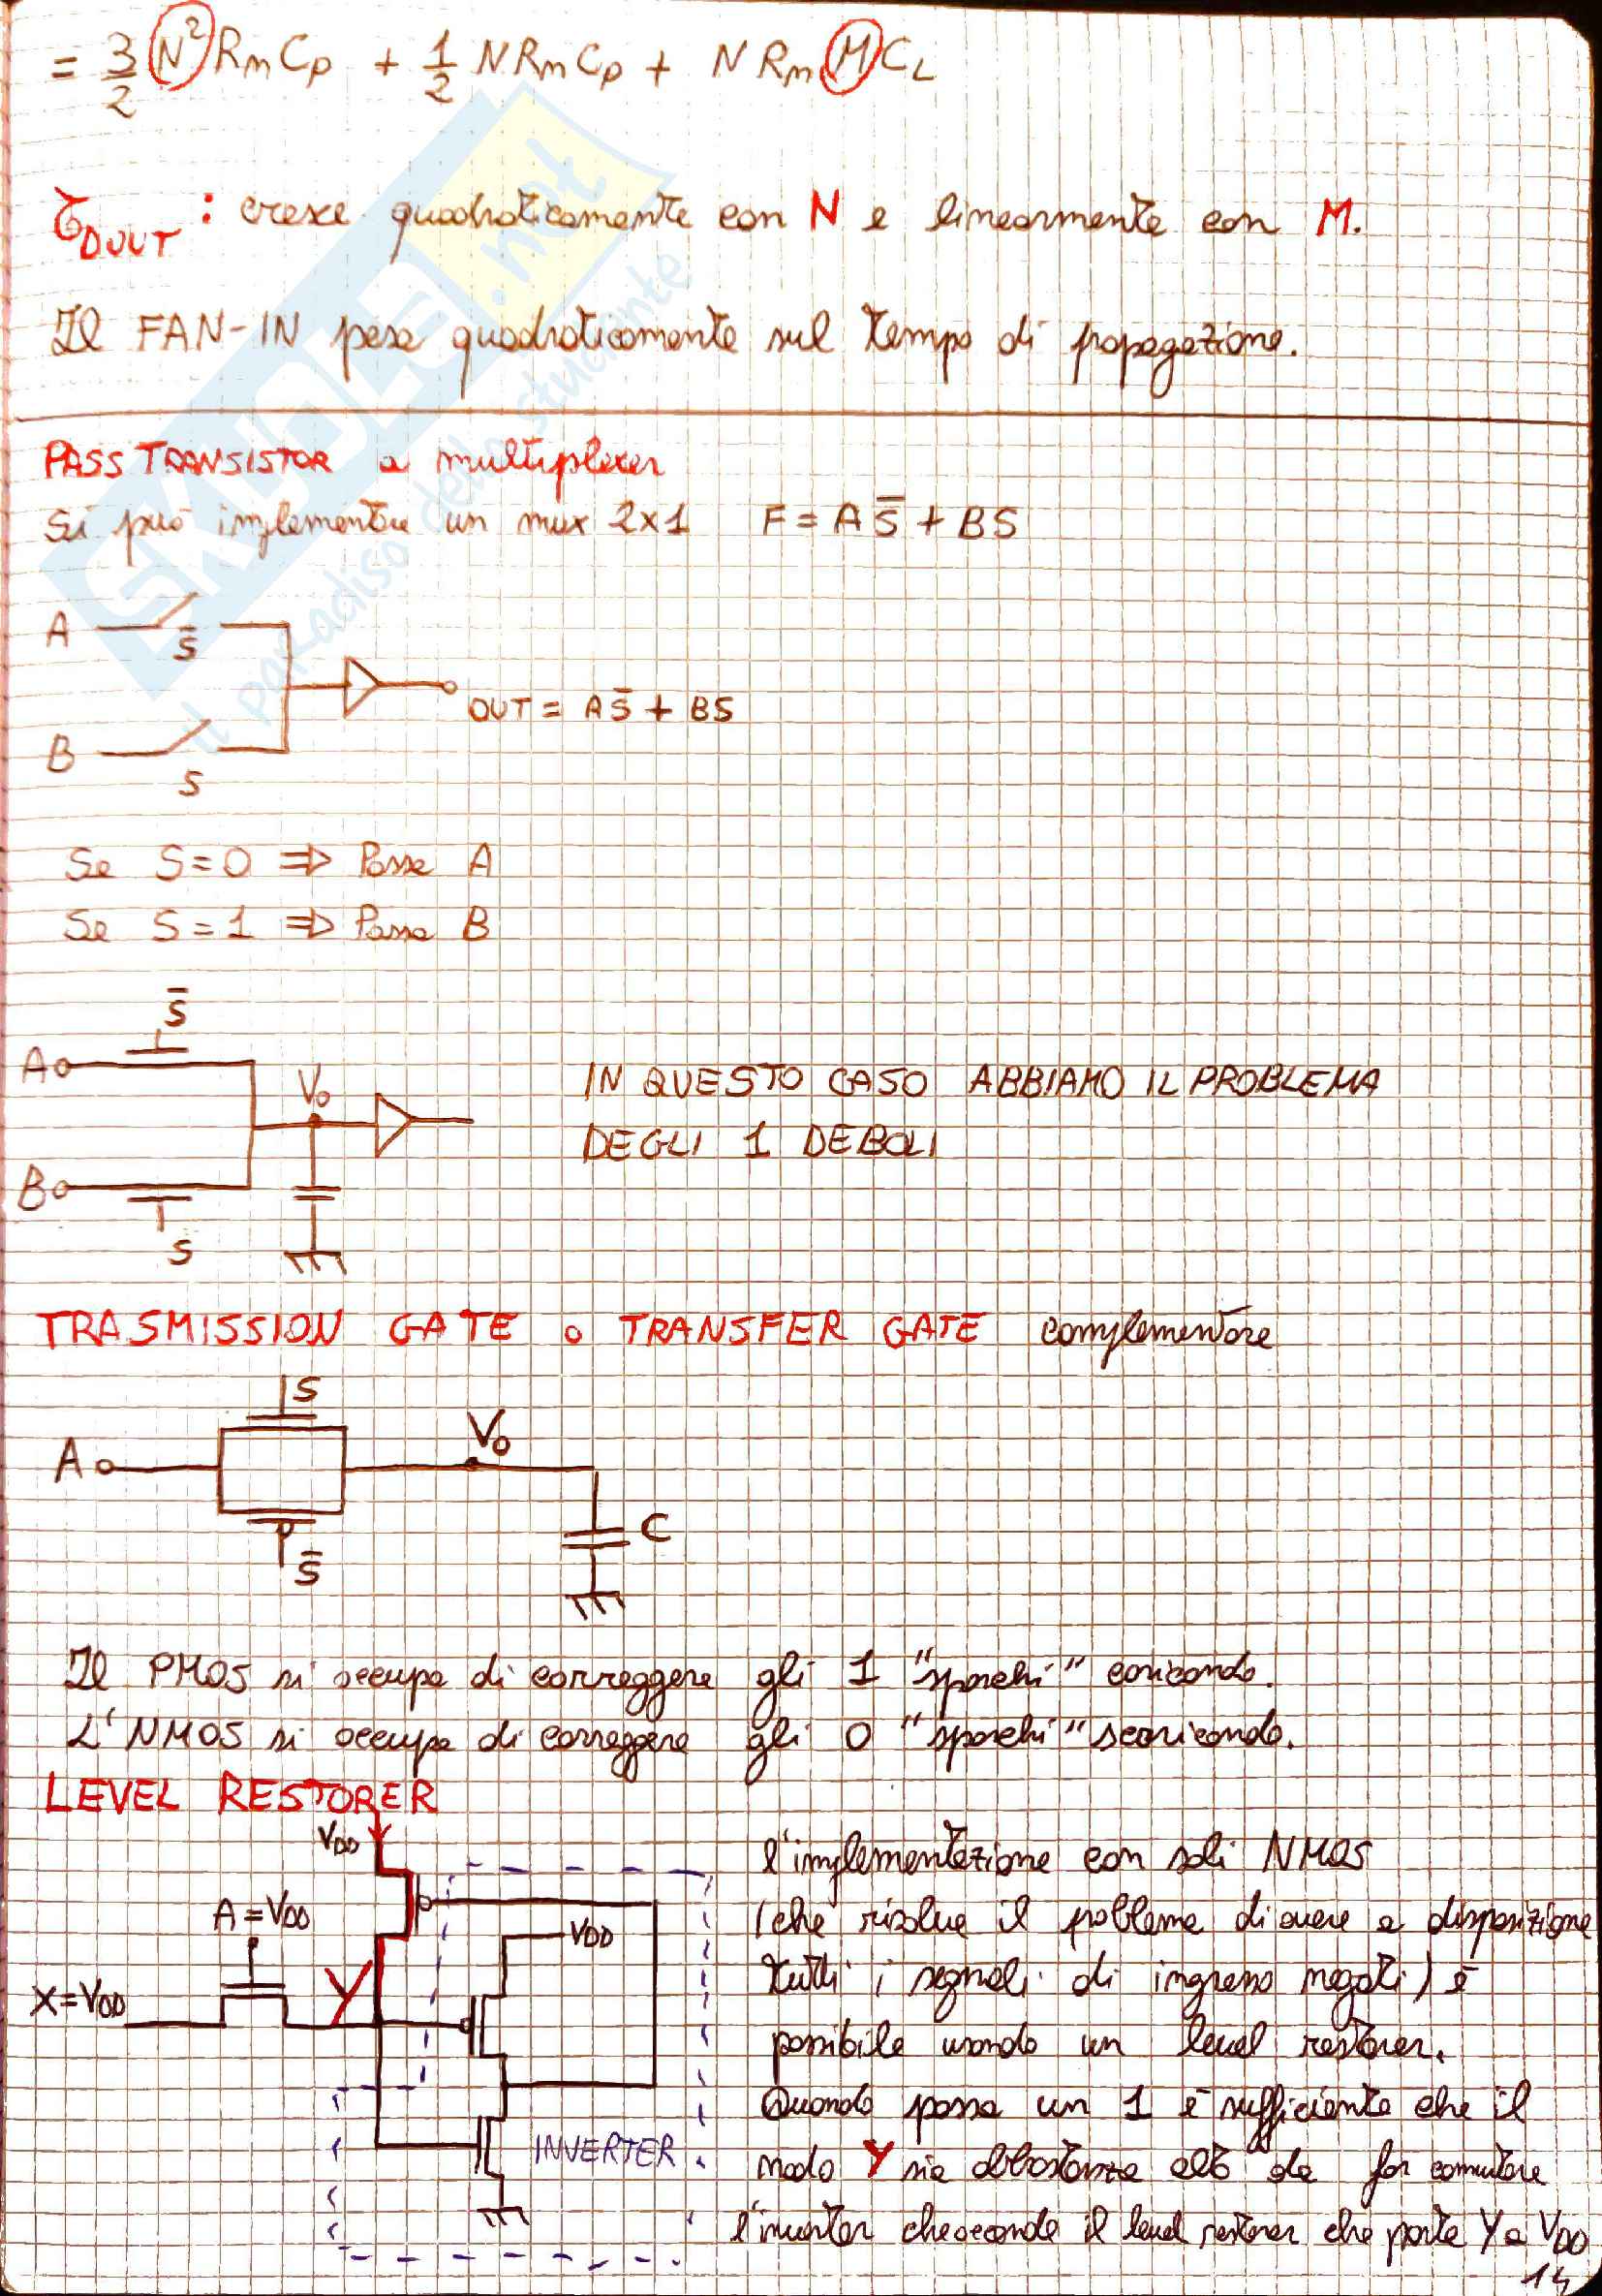 = 3/2 N² Rm Cp + 1/2 N Rm Cp + N Rm M CL
τDOUT : cresce quadraticamente con N e linearmente con M.
Il FAN-IN pesa quadraticamente sul tempo di propagazione.
PASS TRANSISTOR a multiplexer
Si può implementare un mux 2x1 F = A S̅ + B S
A
S̅
OUT = A S̅ + BS
B
S
Se S=0 ⇒ Passa A
Se S=1 ⇒ Passa B
S̅
A
V₀
IN QUESTO CASO ABBIAMO IL PROBLEMA
DEGLI 1 DEBOLI
B
S
TRASMISSION GATE o TRANSFER GATE complementare
S
A
V₀
C
S̅
Il PMOS si occupa di correggere gli 1 "sporchi" caricando.
L'NMOS si occupa di correggere gli 0 "sporchi" scaricando.
LEVEL RESTORER
VDD
A=VDD
VDD
X=VDD
Y
INVERTER
l'implementazione con soli NMOS
(che risolve il problema di avere a disposizione
tutti i segnali di ingresso negati) è
possibile usando un level restorer.
Quando passa un 1 è sufficiente che il
nodo Y sia abbastanza alto da far commutare
l'inverter che accende il level restorer che porta Y a VDD
14
SKUOLA.net
il paradiso dello studente